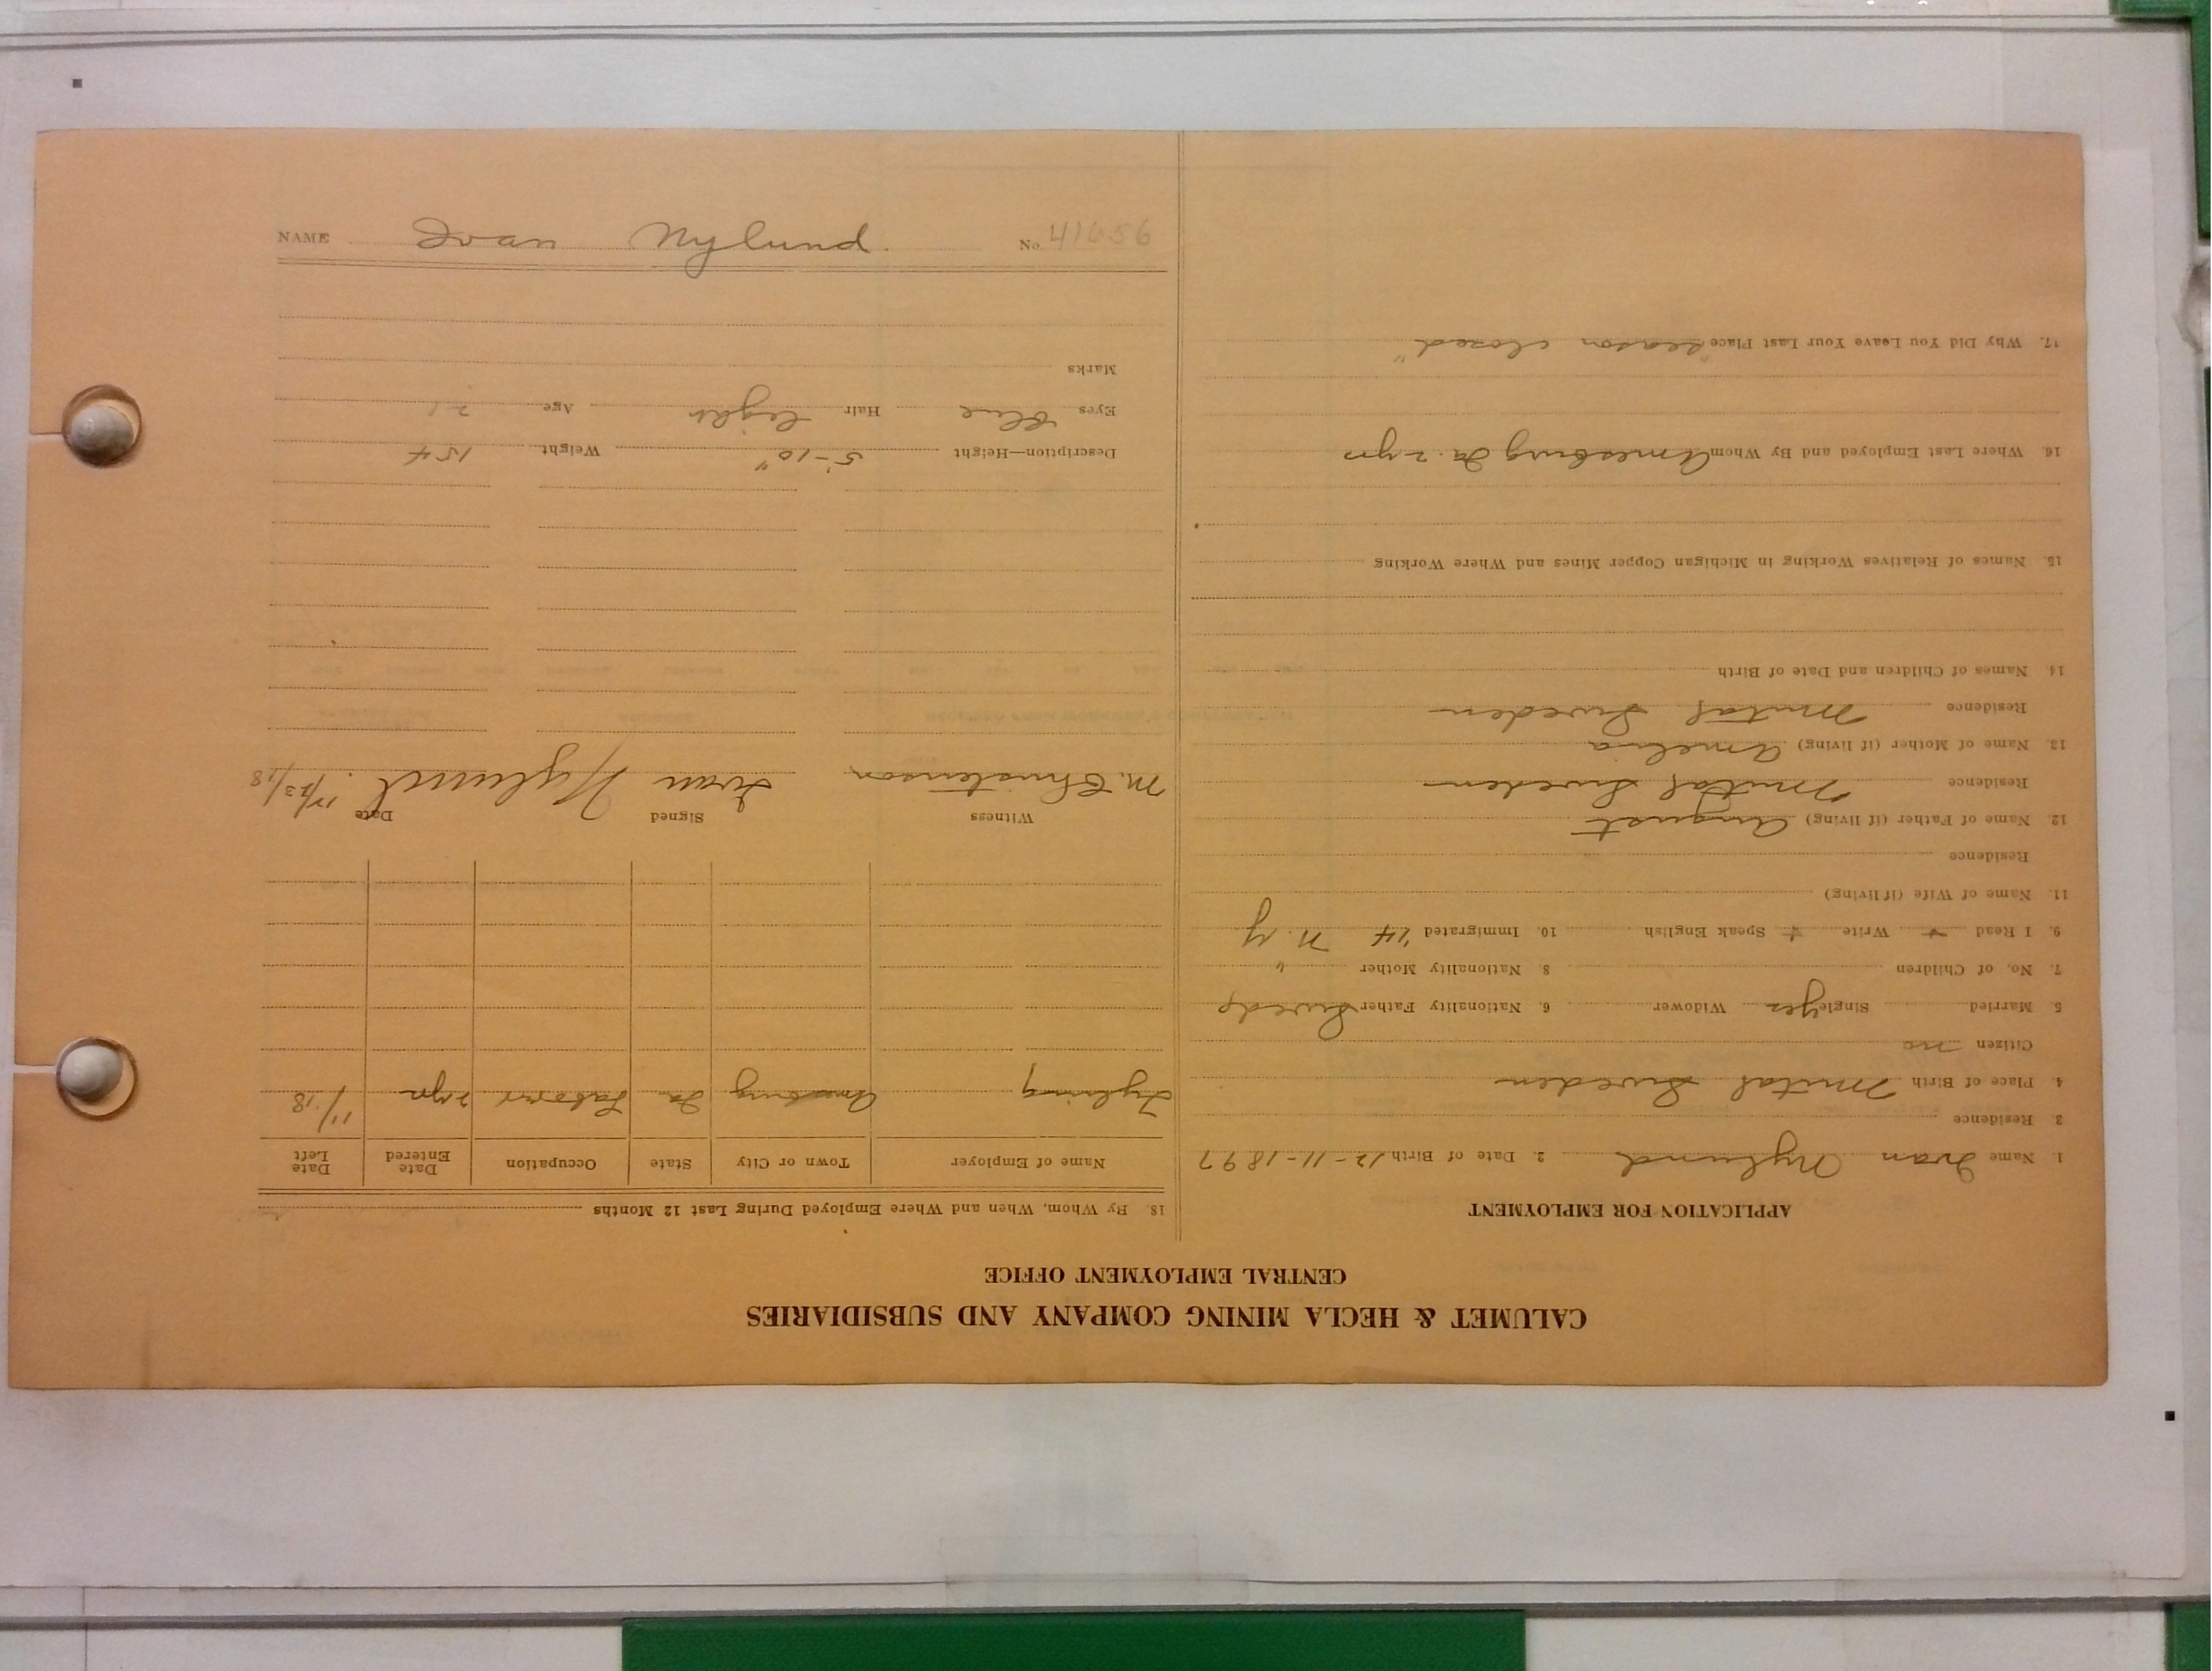 CALUMET & HECLA MINING COMPANY AND SUBSIDIARIES
CENTRAL EMPLOYMENT OFFICE
APPLICATION FOR EMPLOYMENT
1. Name Ivan Nylund 2. Date of Birth 12-11-1897
3 Residence
4 Place of Birth Mutal Sweden
Citizen no
5 Married Single yes Widower 6. Nationality Father Swede
7. No. of Children 8. Nationality Mother "
9. I Read + Write + Speak English 10. Immigrated '14 N.Y
11. Name of Wife (if living)
Residence
12. Name of Father (if living) August
Residence Mutal Sweden
13. Name of Mother (if living) Amelia
Residence Mutal Sweden
14. Names of Children and Date of Birth
15. Names of Relatives Working in Michigan Copper Mines and Where Working
16. Where Last Employed and By Whom Amesburg Ia. 2 yrs
17. Why Did You Leave Your Last Place "season closed"
18. By Whom, When and Where Employed During Last 12 Months
Name of Employer Town or City State Occupation Date Entered Date Left
Amesburg Ia Laborer 2 yrs 11/18
Witness Signed Date
M. Christenson Ivan Nylund. 12/23/18
Description—Height 5'-10" Weight 154
Eyes Blue Hair light Age 21
Marks
NAME Ivan Nylund. No. 41656